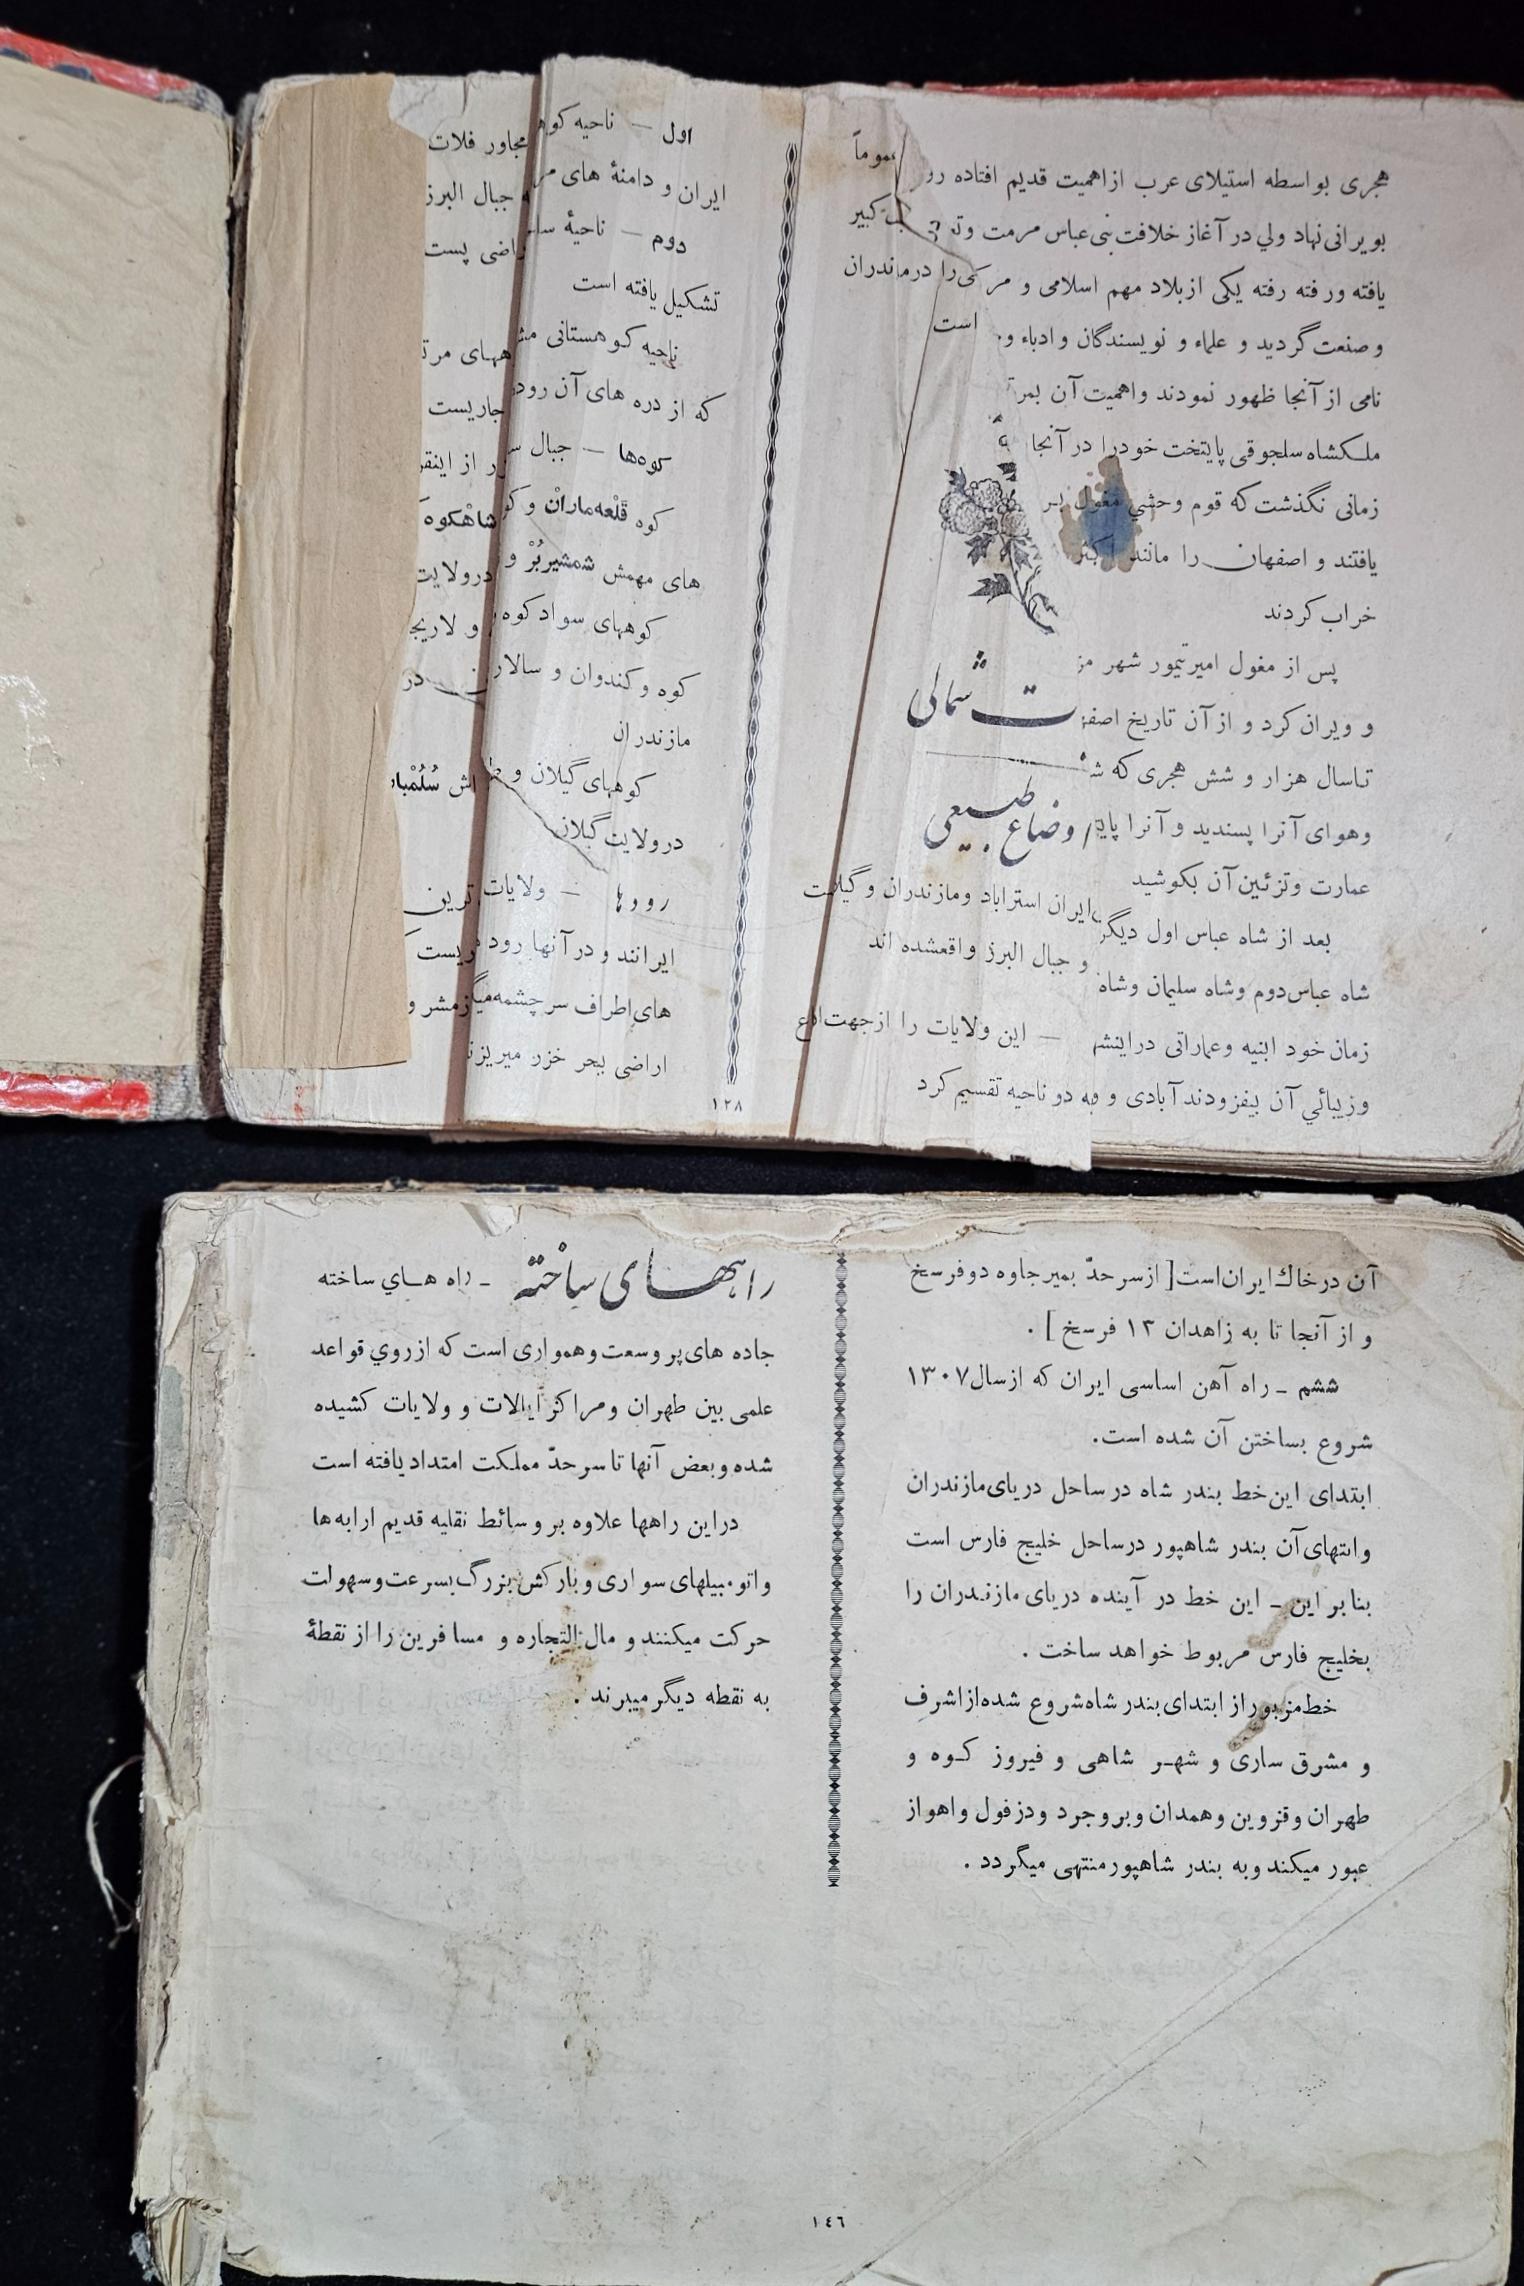 هجری بواسطه استیلای عرب از اهمیت قدیم افتاده رو
بویرانی نهاد ولي در آغاز خلافت بنی عباس مرمت
یافته و رفته رفته یکی از بلاد مهم اسلامی و
و صنعت گردید و علماء و نویسندگان و ادباء و
نامی از آنجا ظهور نمودند و اهمیت آن
ملکشاه سلجوقی پایتخت خود را در آنجا
زمانی نگذشت که قوم وحشي مغول بر
یافتند و اصفهان را مانند
خراب کردند
پس از مغول امیر تیمور شهر
و ویران کرد و از آن تاریخ
تا سال هزار و شش هجری که
و هوای آنرا پسندید و آنرا
عمارت و تزئین آن بکوشید
بعد از شاه عباس اول دیگر
شاه عباس دوم و شاه سلیمان و شاه
زمان خود ابنیه و عماراتی در
و زیبائي آن بیفزودند آبادی و
کبیر
را در مازندران
است
ت شمالی
اوضاع طبیعی
ایران استراباد و مازندران و گیلانست
و جبال البرز واقعشده اند
— این ولایات را از جهت
به دو ناحیه تقسیم کرد
اول — ناحیه مجاور فلات
ایران و دامنهٔ های جبال البرز
دوم — ناحیهٔ اراضی پست
تشکیل یافته است
ناحیه کوهستانی
که از دره های آن جاریست
کوه‌ها — جبال از
کوه قَلْعه مارانْ و شاهْکوه
های مهمش شمشیربُرْ و در ولایت
کوههای سواد کوه و
کوه و کندوان و در
مازندران
کوههای گیلان و سُلُمْبار
در ولایت گیلان
رودها — ولایات ترین
ایرانند و در آنها رود
های اطراف سرچشمه و
اراضی ببحر خزر
١٢٨
آن در خاك ایران است [ از سر حدّ بمیرجاوه دو فرسخ
و از آنجا تا به زاهدان ١٣ فرسخ ] .
ششم ـ راه آهن اساسی ایران که از سال ١٣٠٧
شروع بساختن آن شده است.
ابتدای این خط بندر شاه در ساحل دریای مازندران
و انتهای آن بندر شاهپور در ساحل خلیج فارس است
بنا بر این ـ این خط در آینده دریای مازندران را
بخلیج فارس مربوط خواهد ساخت .
خط مزبور از ابتدای بندر شاه شروع شده از اشرف
و مشرق ساری و شهر شاهی و فیروز کوه و
طهران و قزوین و همدان و بروجرد و دزفول و اهواز
عبور میکند و به بندر شاهپور منتهی میگردد .
راههای ساخته ـ راه هـاي ساخته
جاده های پر وسعت و همواری است که از روي قواعد
علمی بین طهران و مراکز ایالات و ولایات کشیده
شده و بعض آنها تا سر حدّ مملکت امتداد یافته است
در این راهها علاوه بر وسائط نقلیه قدیم ارابه ها
و اتومبیلهای سواری و بارکش بزرگ بسرعت و سهولت
حرکت میکنند و مال التجاره و مسافرین را از نقطهٔ
به نقطه دیگر میبرند .
١٤٦